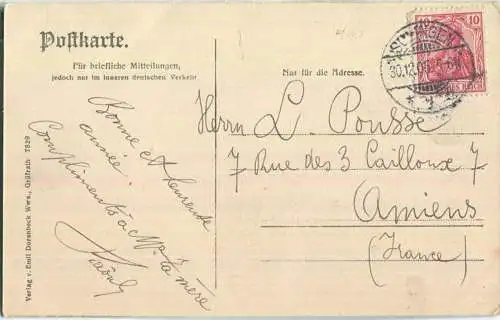 Postkarte.
Für briefliche Mitteilungen,
jedoch nur im inneren deutschen Verkehr
Nur für die Adresse.
10
30.12.0
Bonne et heureuse
année.
Compliments à Mme ta mère
Raoul
Herrn L. Pousse
7 Rue des 3 Cailloux 7
Amiens
(France)
Verlag v. Emil Dorenbeck Wwe., Gräfrath 7829